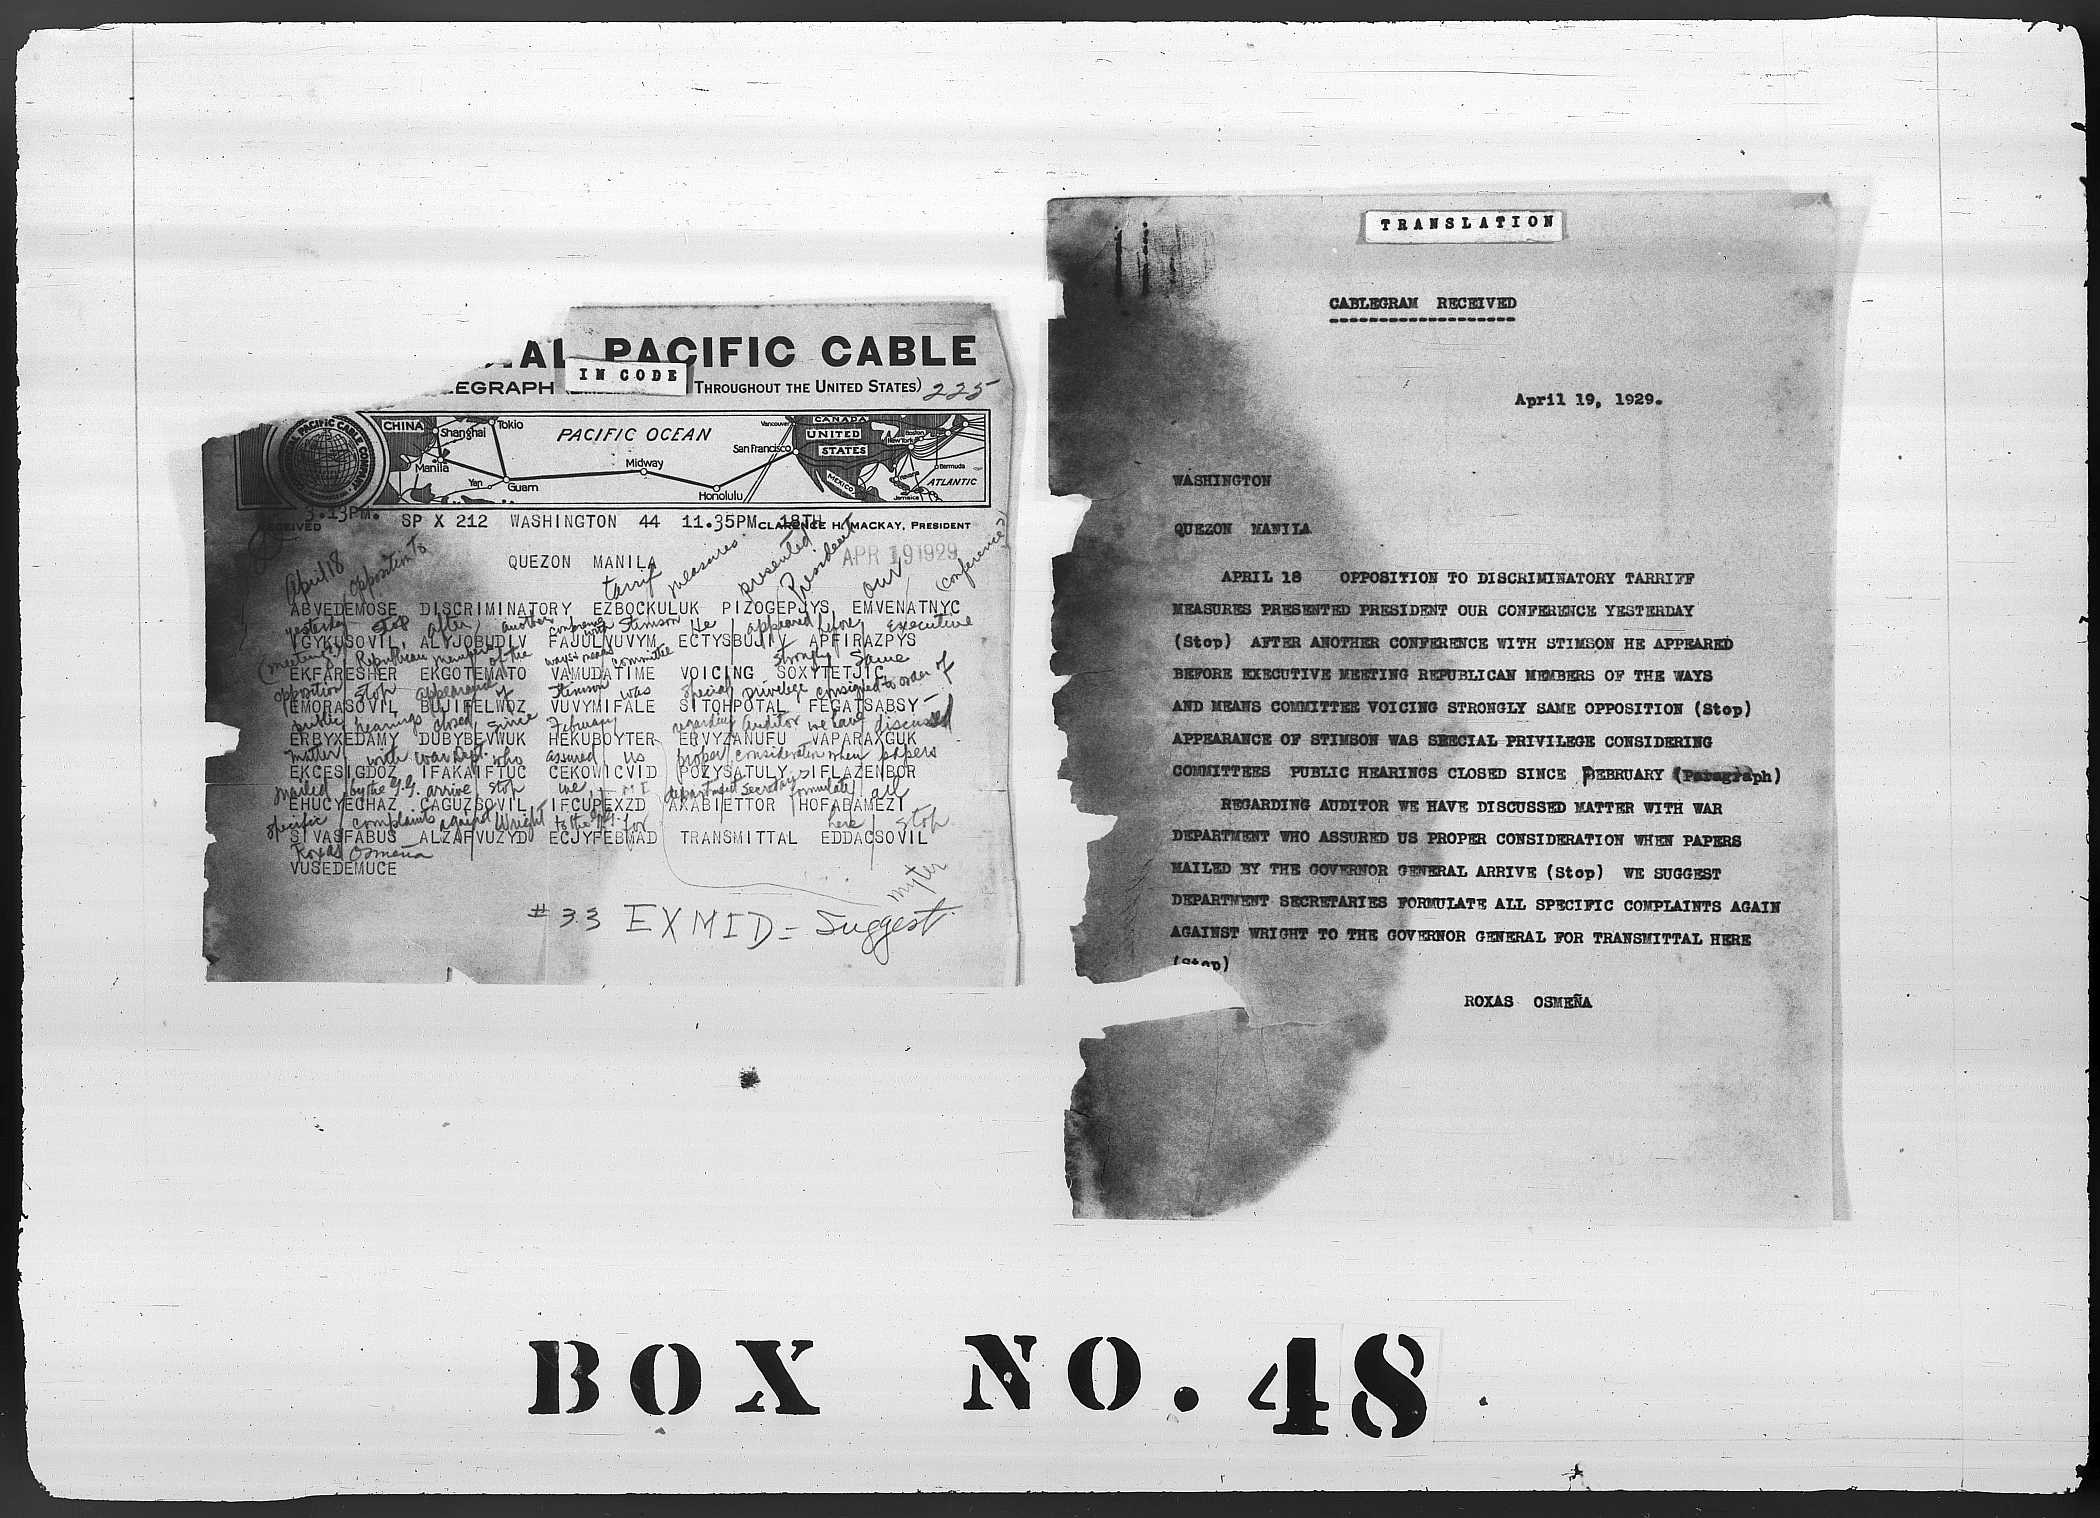 AL PACIFIC CABLE
IN CODE
LEGRAPH
THROUGHOUT THE UNITED STATES)
225
PACIFIC CABLE COMPANY
CHINA
Shanghai
Tokio
Manila
Yap
Guam
PACIFIC OCEAN
Midway
Honolulu
San Francisco
Vancouver
CANADA
UNITED
STATES
MEXICO
Boston
New York
Bermuda
Havana
Jamaica
ATLANTIC
RECEIVED
3.13PM. SP X 212 WASHINGTON 44 11.35PM 18TH
CLARENCE H. MACKAY, PRESIDENT
APR 19 1929
QUEZON MANILA
April 18 opposition to tarrif measures presented President our (conference?)
ABVEDEMOSE DISCRIMINATORY EZBOCKULUK PIZOGEPJYS EMVENATNYC
yesterday stop after another conference with Stimson he appeared before executive
IGYKUSOVIL ALYJOBUDLV FAJULVUVYM ECTYSBUJIF APFIRAZPYS
(meeting?) Republican members of the ways & means committee strongly same
EKFARESHER EKGOTEMATO VAMUDATIME VOICING SOXYTETJIC
opposition stop appearance of Stimson was special privilege consigned to order of
EMORASOVIL BUJIFELWOZ VUVYMIFALE SITOHPOTAL FEGATSABSY
public hearings closed since February regarding Auditor we have discussed
ERBYXEDAMY DUBYBEVWUK HEKUBOYTER ERVYZANUFU VAPARAXGUK
matter with War Dept. who assured us proper consideration when papers
EKCESIGDOZ IFAKAIFTUC CEKOWICVID POZYSATULY SIFLAZENBOR
mailed by the G.G. arrive stop we department Secretarys formulate all
EHUCYECHAZ CAGUZSOVIL IFCUPEXZD AXABIETTOR HOFABAMEZI
specific complaints against Wright to the G.G. for here stop
SIVASFABUS ALZAFVUZYD ECJYFEBMAD TRANSMITTAL EDDACSOVIL
Roxas Osmeña
VUSEDEMUCE
# 33 EXMID = Suggest
TRANSLATION
CABLEGRAM RECEIVED
April 19, 1929.
WASHINGTON
QUEZON MANILA
APRIL 18 OPPOSITION TO DISCRIMINATORY TARRIFF
MEASURES PRESENTED PRESIDENT OUR CONFERENCE YESTERDAY
(Stop) AFTER ANOTHER CONFERENCE WITH STIMSON HE APPEARED
BEFORE EXECUTIVE MEETING REPUBLICAN MEMBERS OF THE WAYS
AND MEANS COMMITTEE VOICING STRONGLY SAME OPPOSITION (Stop)
APPEARANCE OF STIMSON WAS SPECIAL PRIVILEGE CONSIDERING
COMMITTEES PUBLIC HEARINGS CLOSED SINCE FEBRUARY (Paragraph)
REGARDING AUDITOR WE HAVE DISCUSSED MATTER WITH WAR
DEPARTMENT WHO ASSURED US PROPER CONSIDERATION WHEN PAPERS
MAILED BY THE GOVERNOR GENERAL ARRIVE (Stop) WE SUGGEST
DEPARTMENT SECRETARIES FORMULATE ALL SPECIFIC COMPLAINTS AGAIN
AGAINST WRIGHT TO THE GOVERNOR GENERAL FOR TRANSMITTAL HERE
(Stop)
ROXAS OSMEÑA
BOX NO. 48